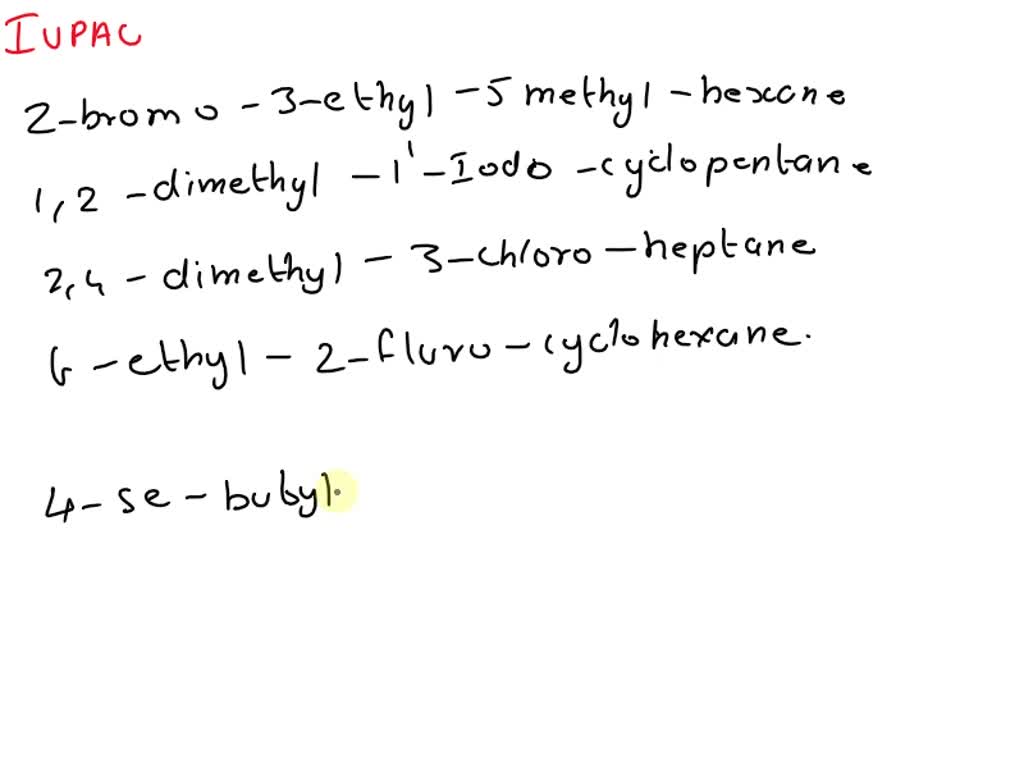 IUPAC
2-bromo-3-ethyl-5 methyl-hexane
1,2-dimethyl-1'-Iodo-cyclopentane
2,4-dimethyl-3-chloro-heptane
6-ethyl-2-fluro-cyclohexane.
4-se-butyl